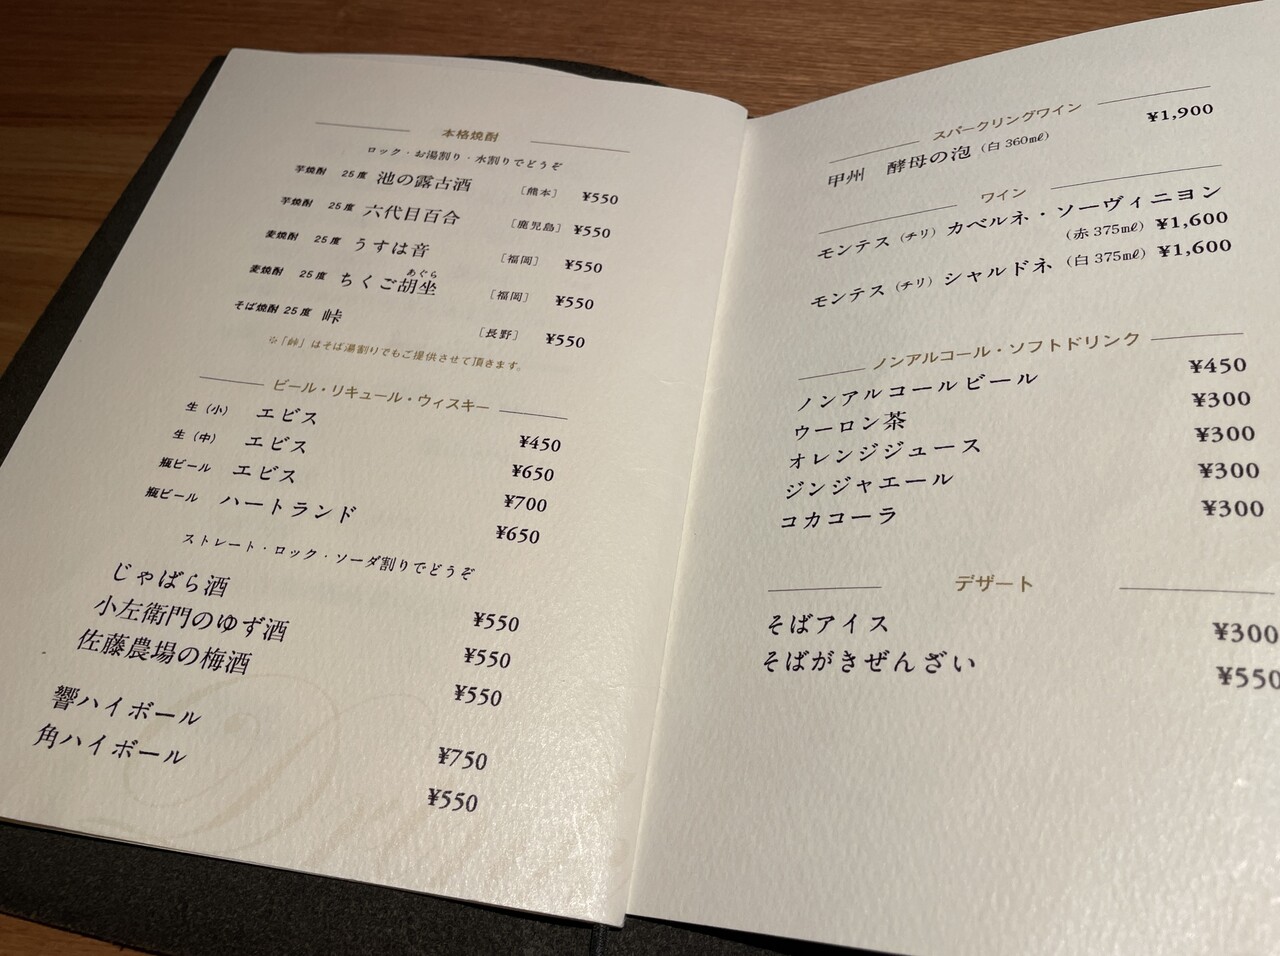 本格焼酎
ロック・お湯割り・水割りでどうぞ
芋焼酎 25度 池の露古酒 [熊本] ¥550
芋焼酎 25度 六代目百合 [鹿児島] ¥550
麦焼酎 25度 うすは音 [福岡] ¥550
麦焼酎 25度 ちくご胡坐 [福岡] ¥550
あぐら
そば焼酎 25度 峠 [長野] ¥550
※「峠」はそば湯割りでもご提供させて頂きます。
ビール・リキュール・ウィスキー
生(小) エビス ¥450
生(中) エビス ¥650
瓶ビール エビス ¥700
瓶ビール ハートランド ¥650
ストレート・ロック・ソーダ割りでどうぞ
じゃばら酒 ¥550
小左衛門のゆず酒 ¥550
佐藤農場の梅酒 ¥550
響ハイボール ¥750
角ハイボール ¥550
スパークリングワイン
甲州 酵母の泡(白360㎖) ¥1,900
ワイン
モンテス(チリ)カベルネ・ソーヴィニヨン
(赤375㎖) ¥1,600
モンテス(チリ)シャルドネ (白375㎖) ¥1,600
ノンアルコール・ソフトドリンク
ノンアルコールビール ¥450
ウーロン茶 ¥300
オレンジジュース ¥300
ジンジャエール ¥300
コカコーラ ¥300
デザート
そばアイス ¥300
そばがきぜんざい ¥550